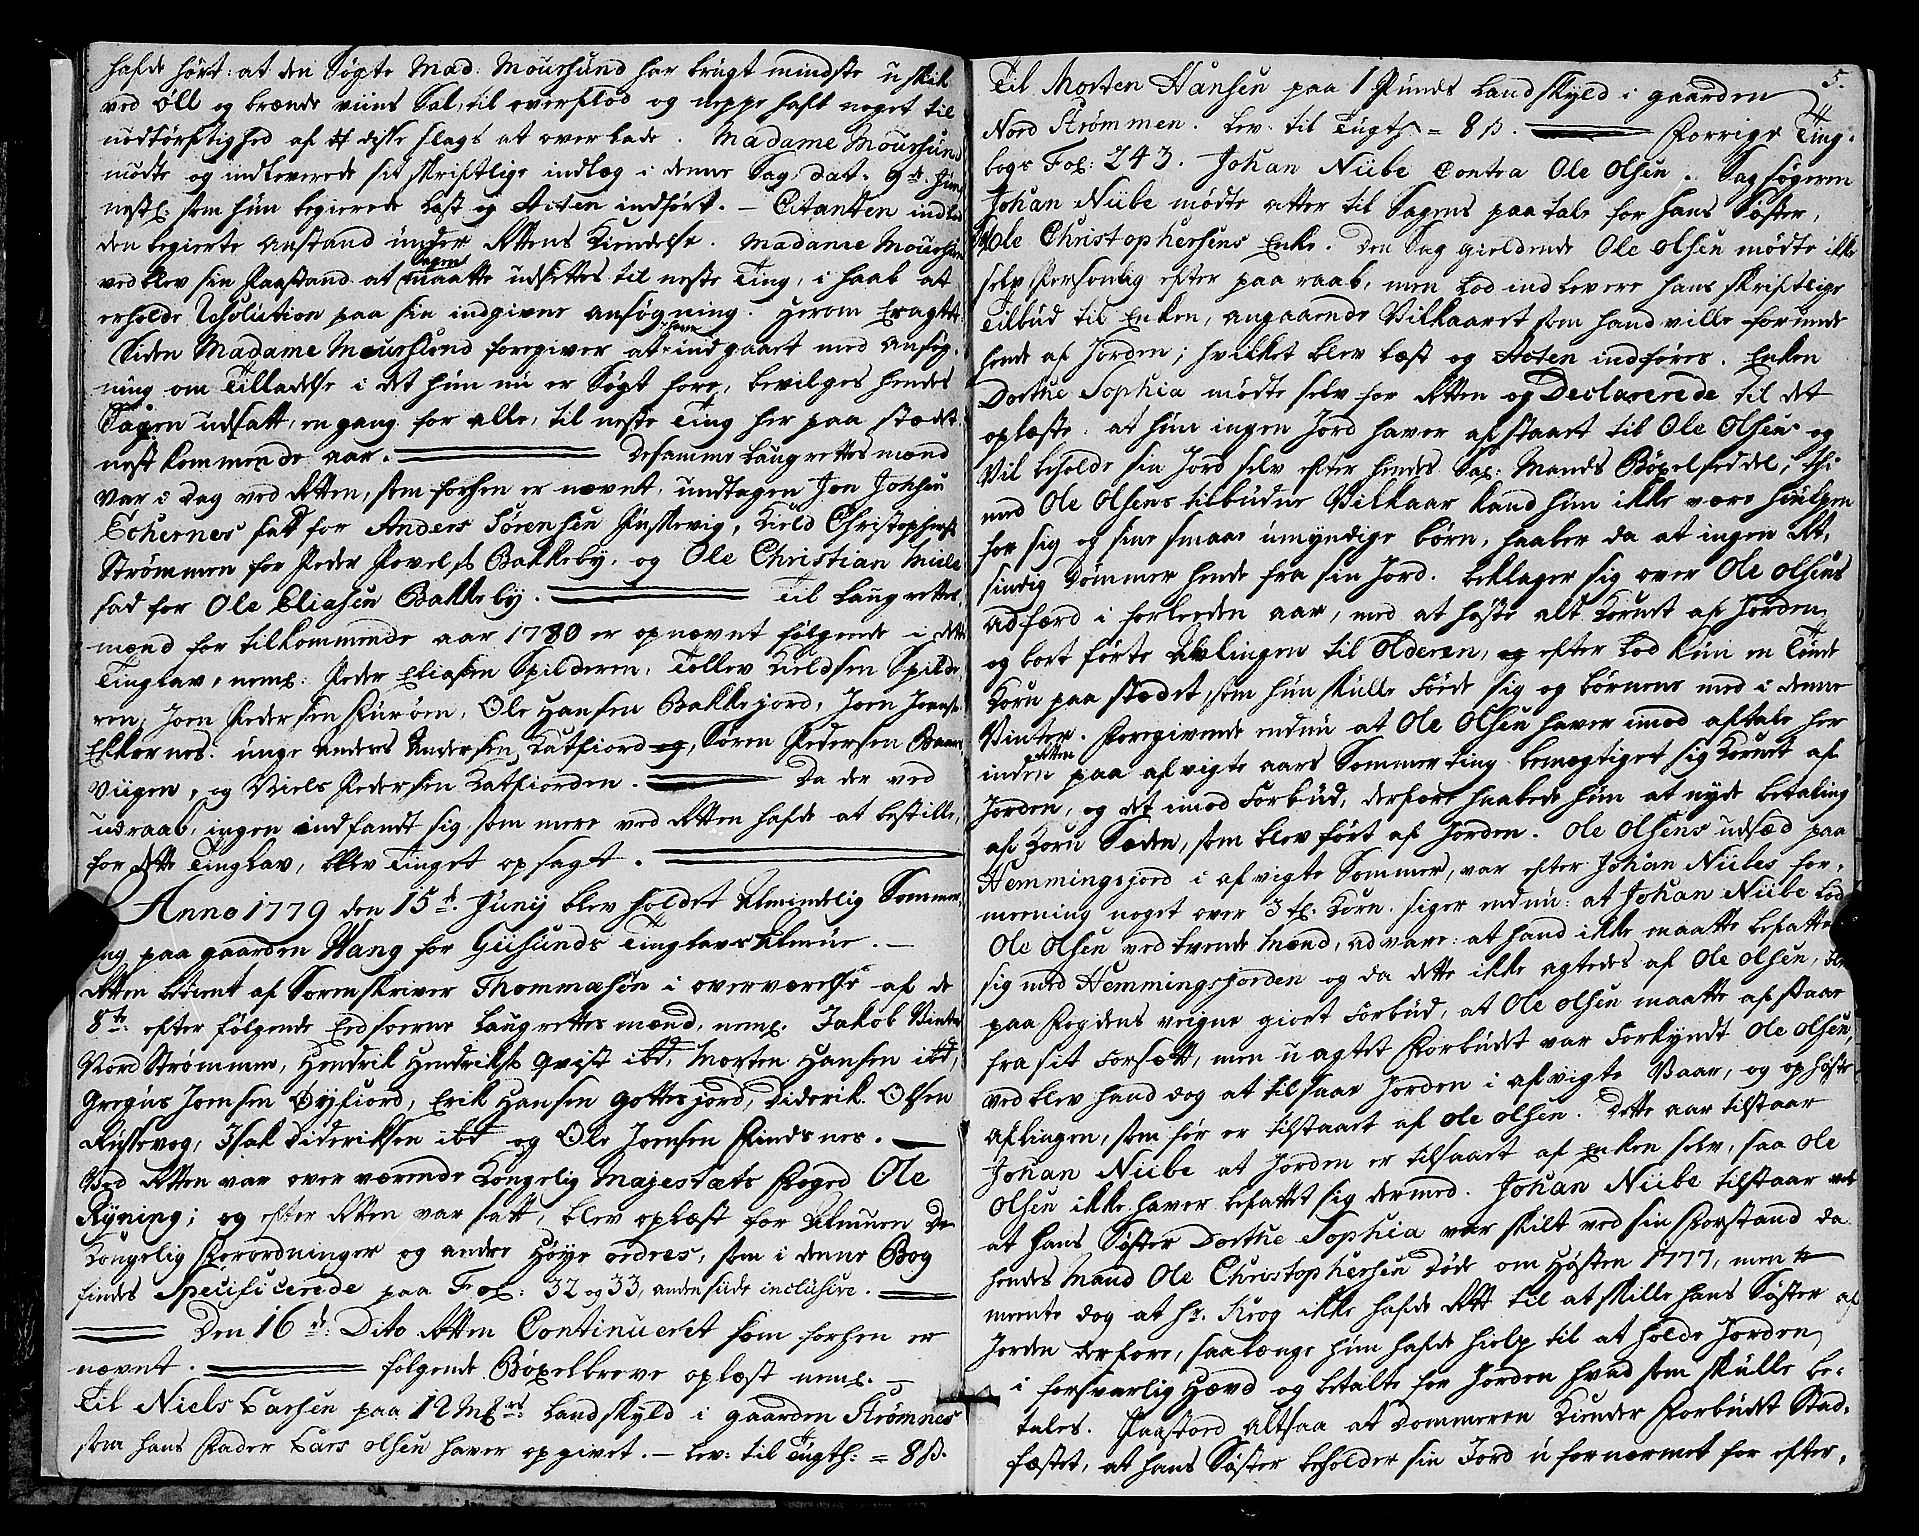 hafde hørt: at den Søgte Mad: Moursund har brugt mindste uskik
ved Øll og brænde viins Sal, til overflod og neppe haft noget til
nødtørftighed af disse slags at overlade. Madame Moursund
mødte og indleverede sit skriftlige indlæg i denne Sag, dat. 9de Juny
nestl. som hun begierede læst og Acten indført. — Citanten
den begierte Anstand under Rettens Kiendelse. Madame Moursund
ved blev sin Paastand at Sagen maatte udsettes til neste Ting, i haab at
erholde Resolution paa sin indgivne ansøgning. Herom Eragtet
Siden Madame Moursund foregiver at have indgaaet med Ansøg-
ning om Tilladelse i det hun nu er Søgt fore, bevilges hendes
Sagen udsatt, en gang for alle, til neste Ting her paa stædet
nestkommende aar. Desamme Laugrettes mænd
var i Dag ved Retten, som forhen er nævnt, undtagen Jon
satt for Anders Sørensen, Kield Christophersen
Strømmen for Peder Povelsen Bakkeby, og Ole Christian
sad for Ole Eliasen Bakkeby. Til Laugrettes
mænd for tilkommende aar 1780 er opnævnt følgende i dette
Tinglav, neml: Peder Eliasen Spilderen, Tollev Kieldsen Spilde-
ren, Joen Pedersen, Ole Hansen Bakkejord, Joen
unge Anders Andersen Katfiord, Søren Pedersen
Viigen, og Niels Pedersen Katfiorden. Da der ved
udraab, ingen indfandt sig som mere ved Retten hafde at bestille,
for dette Tinglav, blev Tinget opsagt.
Anno 1779 den 15d. Junij blev holdet Almindelig Sommer
ting paa gaarden Wang for Giisunds Tinglavs Almue. —
Retten betient af Sorenskriver Thommesøn i overværelse af de
8te efter følgende Eedsvorne Laugrettes mænd, neml. Jakob
Nord Strømmen, Hendrik Hendriksen Qvist ibd, Morten Hansen ibd,
Gregus Joensen Øyfiord, Erik Hansen Gottesjord, Diderik Olsen
Russevog, Isak Dideriksen ibd og Ole Joensen Findsnes. —
Ved Retten var over værende Kongelig Majestæts Foged Ole
Rÿning; og efter Retten var satt, blev oplæst for Almuen De
Kongelig Forordninger og andre Høye ordres, som i denne Bog
findes Specificerede paa Fol: 32 og 33, anden side inclusive.
Den 16d: Dito Retten Continueret som forhen er
nævnt. følgende Bøxelbreve oplæst neml. —
Til Niels Larsen paa 12 Mkr Landskyld i gaarden Strømnes
som hans Fader Lars Olsen haver opgivet. — Lev: til Tugth: = 8 ß.
5.
Til Morten Hansen paa 1 Punds Landskyld i gaarden
Nord Strømmen. Lev: til Tugth = 8 ß. Forrige Ting-
bogs Fol: 243. Johan Nübe Contra Ole Olsen. Sagsøgeren
Johan Nübe mødte atter til Sagens paatale for hans Søster,
Ole Christophersens Enke. Den Sag gieldende Ole Olsen mødte ikke
selv Personlig efter paaraab, men lod indlevere hans skriftlige
Tilbud til Enken, angaaende Vilkaaret som hand ville forunde
hende af Jorden; hvilket blev læst og Acten indføres. Enken
Dorthe Sophia mødte selv for Retten og Declarerede til det
oplæste: at hun ingen Jord haver afstaaet til Ole Olsen og
Vil beholde sin Jord selv efter hendes Sal: Mands Bøxelseddel, thi
med Ole Olsens tilbudne Vilkaar kand hun ikke være hiulpen
for sig og sine smaae umyndige børn, haaber da at ingen Ret-
sindig Dømmer hende fra sin Jord. beklager sig over Ole Olsens
Adfærd i forleeden aar, med at høste alt Kornet af Jorden,
og bort førte Avlingen til Olderen, efter lod kun en Tønde
Korn paa stædet som hun skulle Føde sig og børnene med i denne
Vinter. Foregivende endnu at Ole Olsen haver imod aftale her
inden Retten paa afvigte aars Sommerting bemægtiget sig Kornet af
Jorden, og det imod Forbud, derfore haabede hun at nyde betaling
af Korn Sæden, som blev ført af Jorden. Ole Olsens udsæd paa
Hemmingsjord i afvigte Sommer, var efter Johan Nübes for-
meening noget over 3 td: Korn. siger endnu: at Johan Nübe lod
Ole Olsen ved tvende Mænd, advare: at hand ikke maatte befatte
sig med Hemmingsjorden og da dette ikke agtedes af Ole Olsen,
paa Fogdens veigne giort Forbud, at Ole Olsen maatte afstaae
fra sit Forsætt, men uagtet Forbudet var Forkyndt Ole Olsen,
ved blev hand dog at tilsaae Jorden i afvigte Vaar, og ophøste
Aflingen, som før er tilstaaet af Ole Olsen. Dette aar tilstaar
Johan Nübe at Jorden er tilsaaet af Enken selv, saa Ole
Olsen ikke haver befattet sig dermed. Johan Nübe tilstaar
at hans Søster Dorthe Sophia var skilt ved sin Forstand da
hendes Mand Ole Christophersen Døde om Høsten 1777, men
meente dog at hr. Krog ikke hafde Rett til at skille hans Søster af
Jorden derfore, saalænge hun hafde hielp til at holde Jorden
i forsvarlig Hævd og betalte for Jorden hvad som skulle be-
tales. Paastod altsaa at Dommeren Kiender Forbudet Stad-
fæstet, at hans Søster beholder sin Jord ufornærmet for efter-